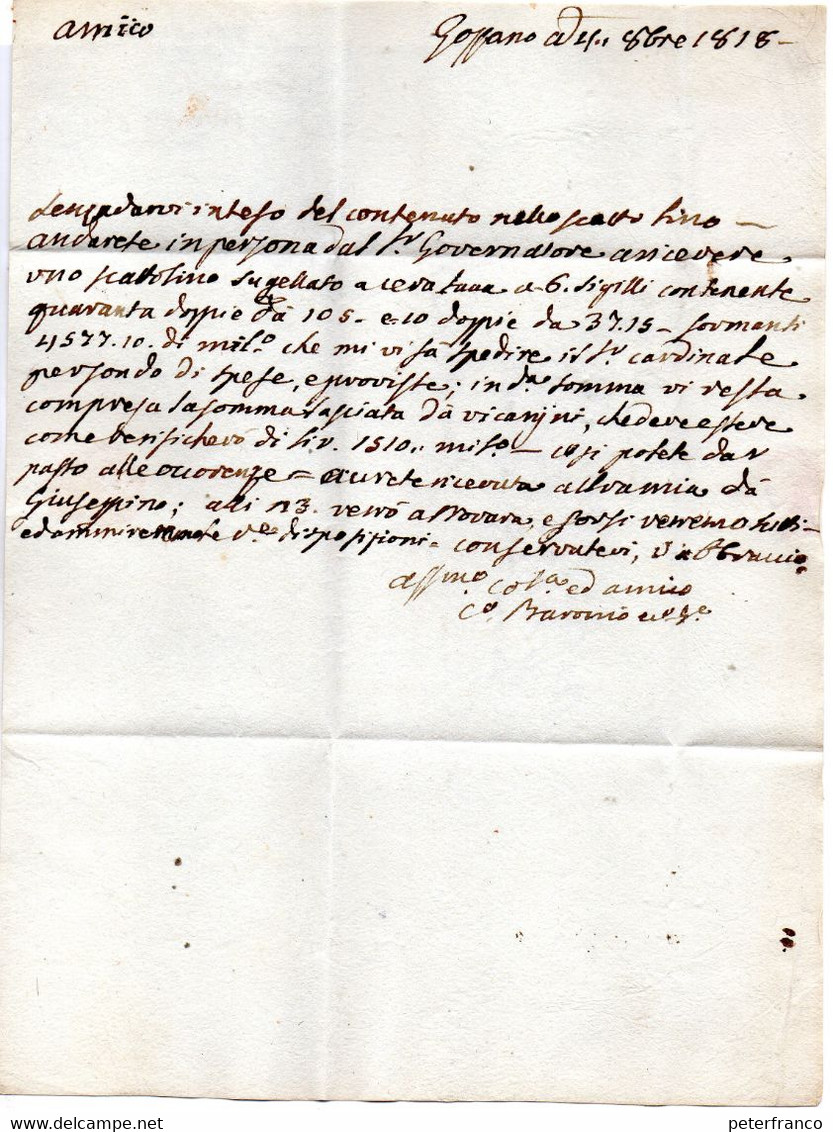 Amico
Gozzano a dì 4. 8bre 1818 -
Senza darvi inteso del contenuto nello scatto lino -
andarete in persona dal Sr. Governatore a ricevere
uno scattolino sugellato a cera a 6. sigilli contenente
quaranta doppie dà 105 - e 10 doppie da 37.15 - formanti
4577.10. di mil.o che mi vi fà spedire il Sr. Cardinale
per fondo di spese, e proviste; in d.a somma vi resta
compresa la somma lasciata dà vicarini, che deve essere
come verificherò di lir. 1510. mil.o - così potete dar
passo alle occorenze = avrete ricevuta altra mia dà
Giuseppino; alli 13. verrò a Novara, e forsi verremo tutti
ed ammireremo le V.e disposizioni = conservatevi, v'abbraccio
aff.mo ed amico
C.o Baronio
www.delcampe.net
peterfranco